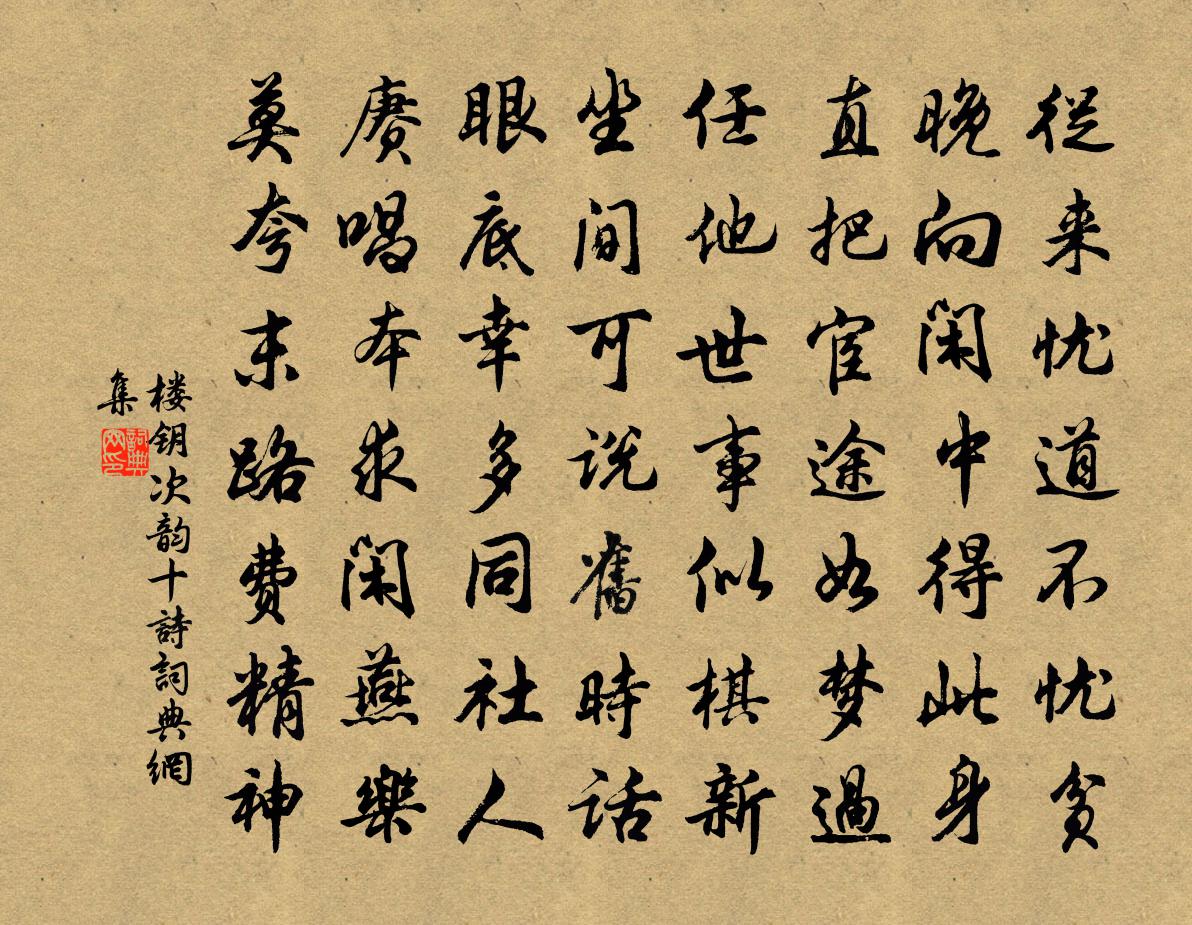 従来忧道不忧贫
晚向闲中得此身
直把宦途如梦過
任他世事似棋新
坐间可说舊時話
眼底幸多同社人
赓唱本求闲燕樂
莫夸末路费精神
楼钥次韵十詩詞典網
集
詞典网印